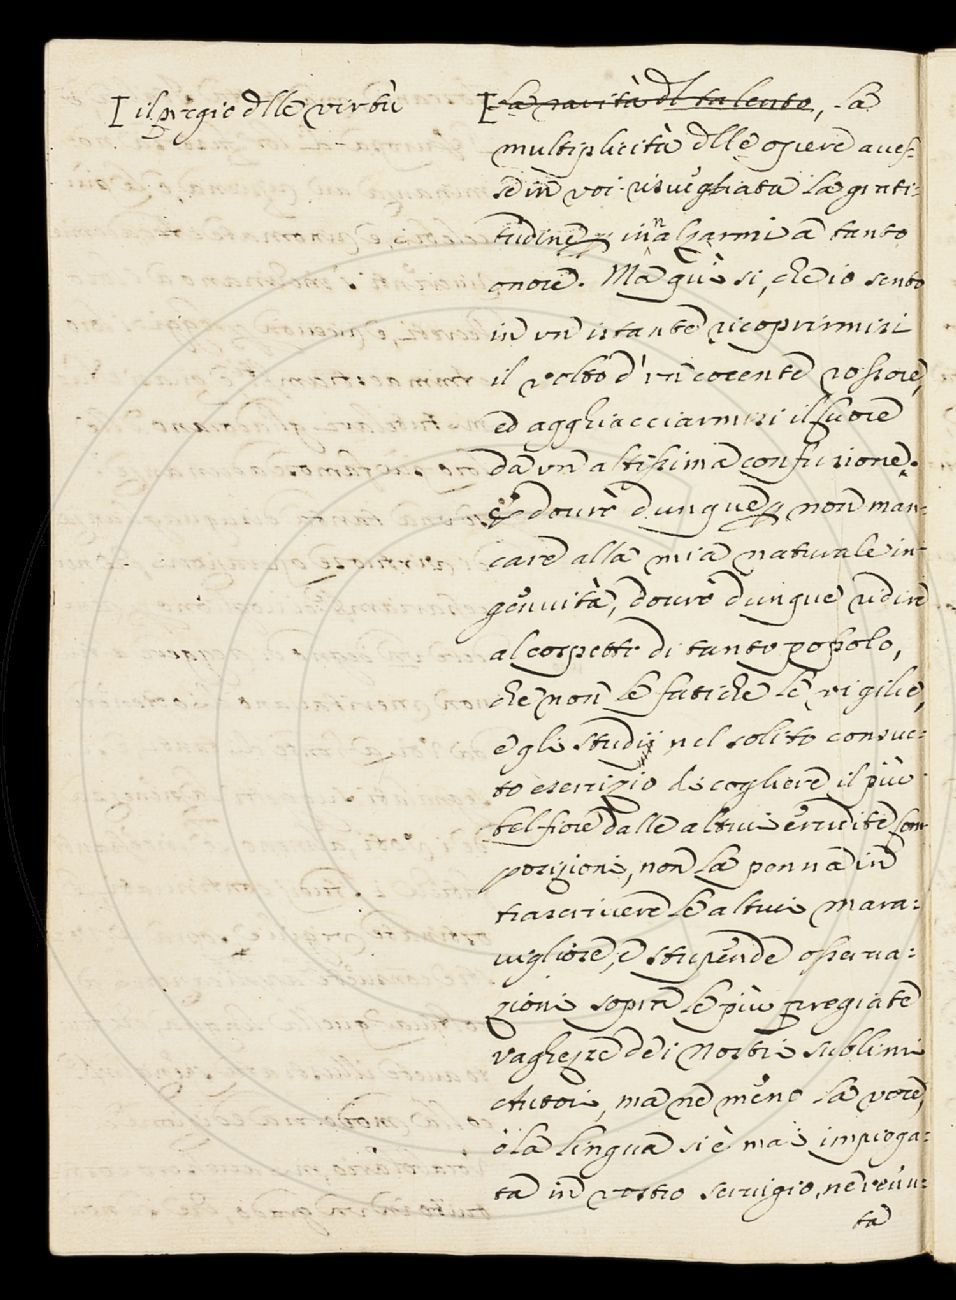 [ il pregio dlle virtù
[ la rarità dl talento, la
multiplicità dlle opere aues-
se in voi risuegliata la grati-
tudine p innalzarmi à tanto
onore. Ma quì si, che io sento
in vn istante ricoprirmisi
il volto d'vn cocente rossore,
ed agghiacciarmisi il cuore
da vn altissima confusione.
E dourò dunque p non man-
care alla mia naturale in-
genuità, dourò dunque vdire
al cospetto di tanto popolo,
che non le fatiche le vigilie,
e gli studij nel solito consue-
to esercizio di cogliere il più
bel fiore dalle altrui erudite com-
posizioni, non la penna in
trascriuere le altrui mara-
uigliose, e stupende osserua-
zioni sopra le più pregiate
vaghezze dei nostri sublimi
Autori, ma ne meno la voce,
ò la lingua si è mai impiega-
ta in vostro seruigio, ne venu-
ta